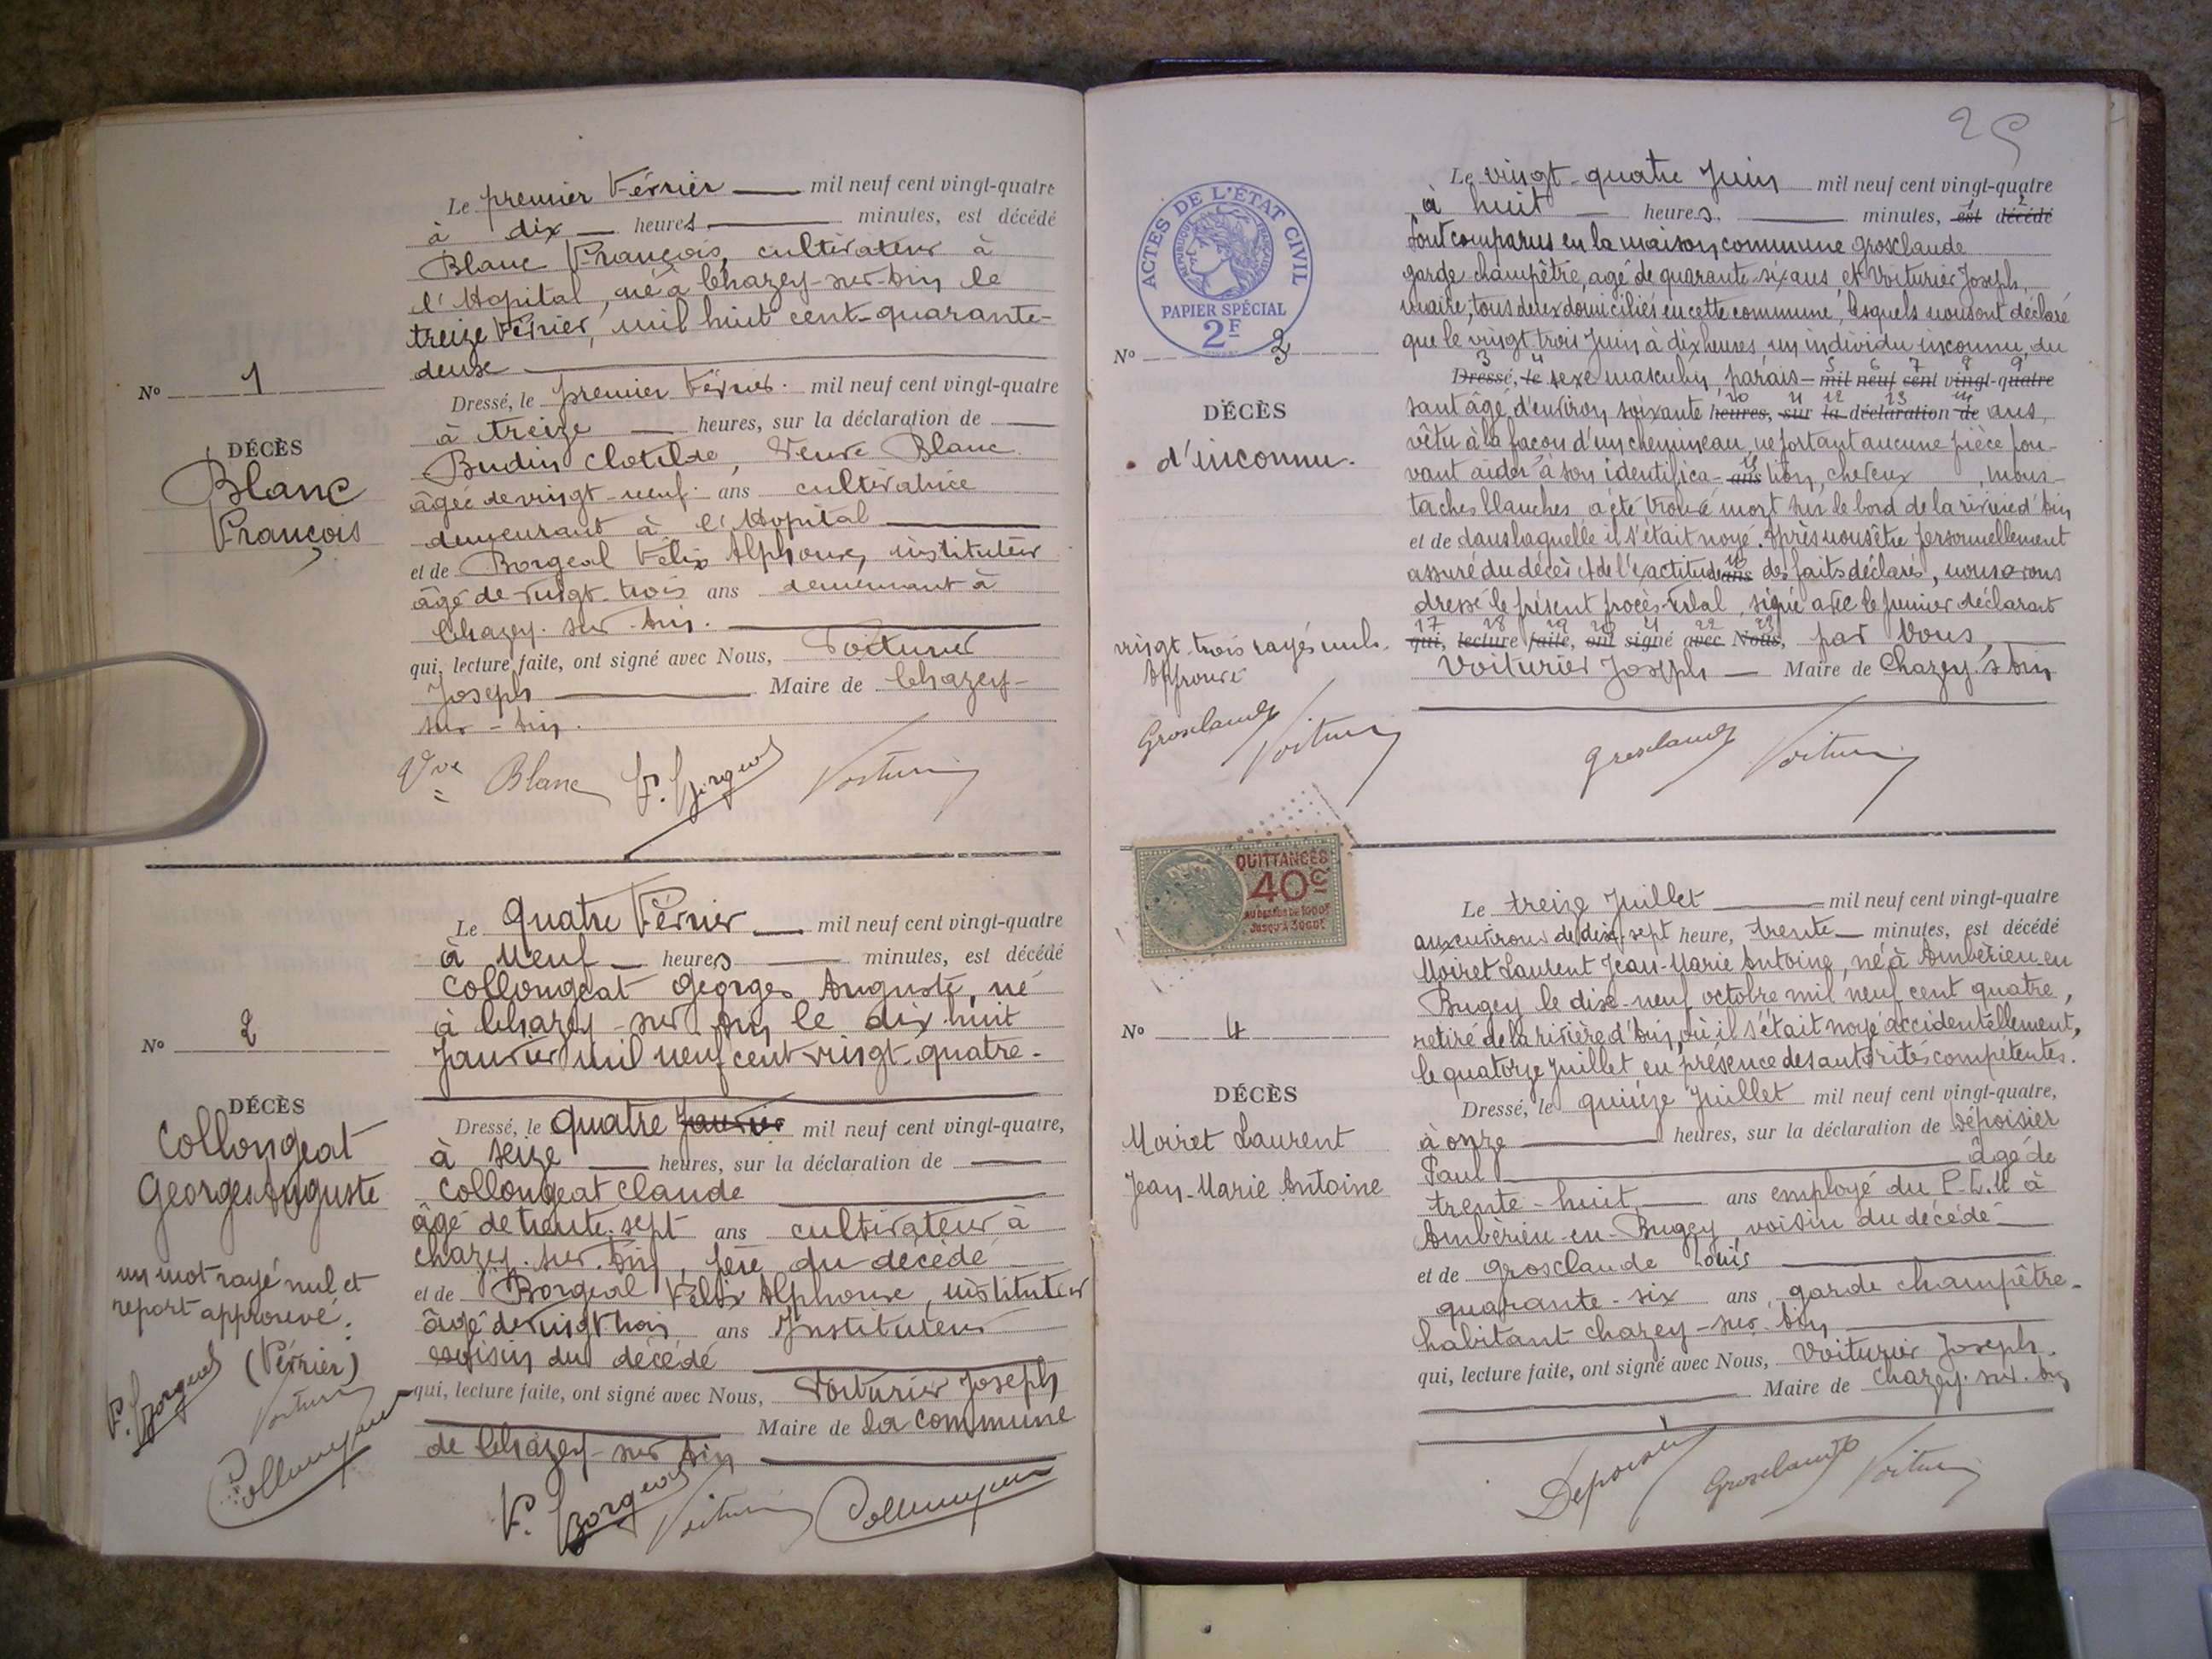 Le premier Février mil neuf cent vingt-quatre
à dix heures minutes, est décédé
Blanc François, cultivateur à
l'Hopital, né à Chazey-sur-Ain le
treize Février, mil huit cent-quarante-
deux
Nº 1
DÉCÈS
Blanc
François
Dressé, le premier Février mil neuf cent vingt-quatre
à treize heures, sur la déclaration de
Budin Clotilde, Veuve Blanc
âgée de vingt-neuf ans cultivatrice
demeurant à l'Hopital
et de Borgeal Félix Alphonse, instituteur
âgé de vingt-trois ans demeurant à
Chazey-sur-Ain.
qui, lecture faite, ont signé avec Nous, Voiturier
Joseph Maire de Chazey-
sur-Ain.
Vve Blanc F. Borgeal Voiturier
Le quatre Février mil neuf cent vingt-quatre
à neuf heures minutes, est décédé
Collongeat Georges Auguste, né
à Chazey-sur-Ain le dix-huit
Janvier mil neuf cent vingt-quatre-
Nº 2
DÉCÈS
Collongeat
Georges Auguste
un mot rayé nul et
report approuvé.
(Février)
F. Borgeal
Voiturier
Collongeat
Dressé, le quatre Janvier mil neuf cent vingt-quatre,
à seize heures, sur la déclaration de
Collongeat Claude
âgé de trente-sept ans cultivateur à
Chazey-sur-Ain, père du décédé
et de Borgeal Félix Alphonse, instituteur
âgé de vingt trois ans Instituteur
voisin du décédé
qui, lecture faite, ont signé avec Nous, Voiturier Joseph
Maire de La commune
de Chazey-sur-Ain
F. Borgeal Voiturier Collongeat
25
ACTES DE L'ÉTAT CIVIL
RÉPUBLIQUE FRANÇAISE
PAPIER SPÉCIAL
2F
Nº 3
DÉCÈS
d'inconnu.
Le vingt-quatre Juin mil neuf cent vingt-quatre
à huit heures, minutes, est décédé
sont comparus en la maison commune Grosclaude
garde-champêtre, agé de quarante-six ans et Voiturier Joseph,
maire, tous deux domiciliés en cette commune, lesquels nous ont déclaré
que le vingt trois Juin à dix heures, un individu inconnu, du
Dressé, le sexe masculin, parais- mil neuf cent vingt-quatre
sant âgé d'environ soixante heures, sur la déclaration de ans,
vêtu à la façon d'un chemineau, ne portant aucune pièce pou-
vant aider à son identifica- ans tion, cheveux , mous-
taches blanches a été trouvé mort sur le bord de la rivière d'Ain
et de dans laquelle il s'était noyé. Après nous être personnellement
assuré du décès et de l'exactitude ans des faits déclarés, nous avons
dressé le présent procès-verbal, signé avec le premier déclarant
qui, lecture faite, ont signé avec Nous, par Nous,
Voiturier Joseph Maire de Chazey-s-Ain
vingt-trois rayés nuls.
Approuvé
Grosclaude Voiturier
Grosclaude Voiturier
QUITTANCES
40c
AU DESSUS DE 1000F
JUSQU'À 3000F
Nº 4
DÉCÈS
Moiret Laurent
Jean-Marie Antoine
Le treize Juillet mil neuf cent vingt-quatre
aux environs de dix-sept heure, trente minutes, est décédé
Moiret Laurent Jean-Marie Antoine, né à Ambérieu-en
Bugey le dix-neuf octobre mil neuf cent quatre,
retiré de la rivière d'Ain, où il s'était noyé accidentellement,
le quatorze Juillet en présence des autorités compétentes.
Dressé, le quinze Juillet mil neuf cent vingt-quatre,
à onze heures, sur la déclaration de Dépoisier
Paul âgé de
trente-huit ans employé du P.L.M à
Ambérieu-en-Bugey voisin du décédé
et de Grosclaude Louis
quarante-six ans, garde champêtre-
habitant Chazey-sur-Ain
qui, lecture faite, ont signé avec Nous, Voiturier Joseph.
Maire de Chazey-sur-Ain
Depoisier Grosclaude Voiturier